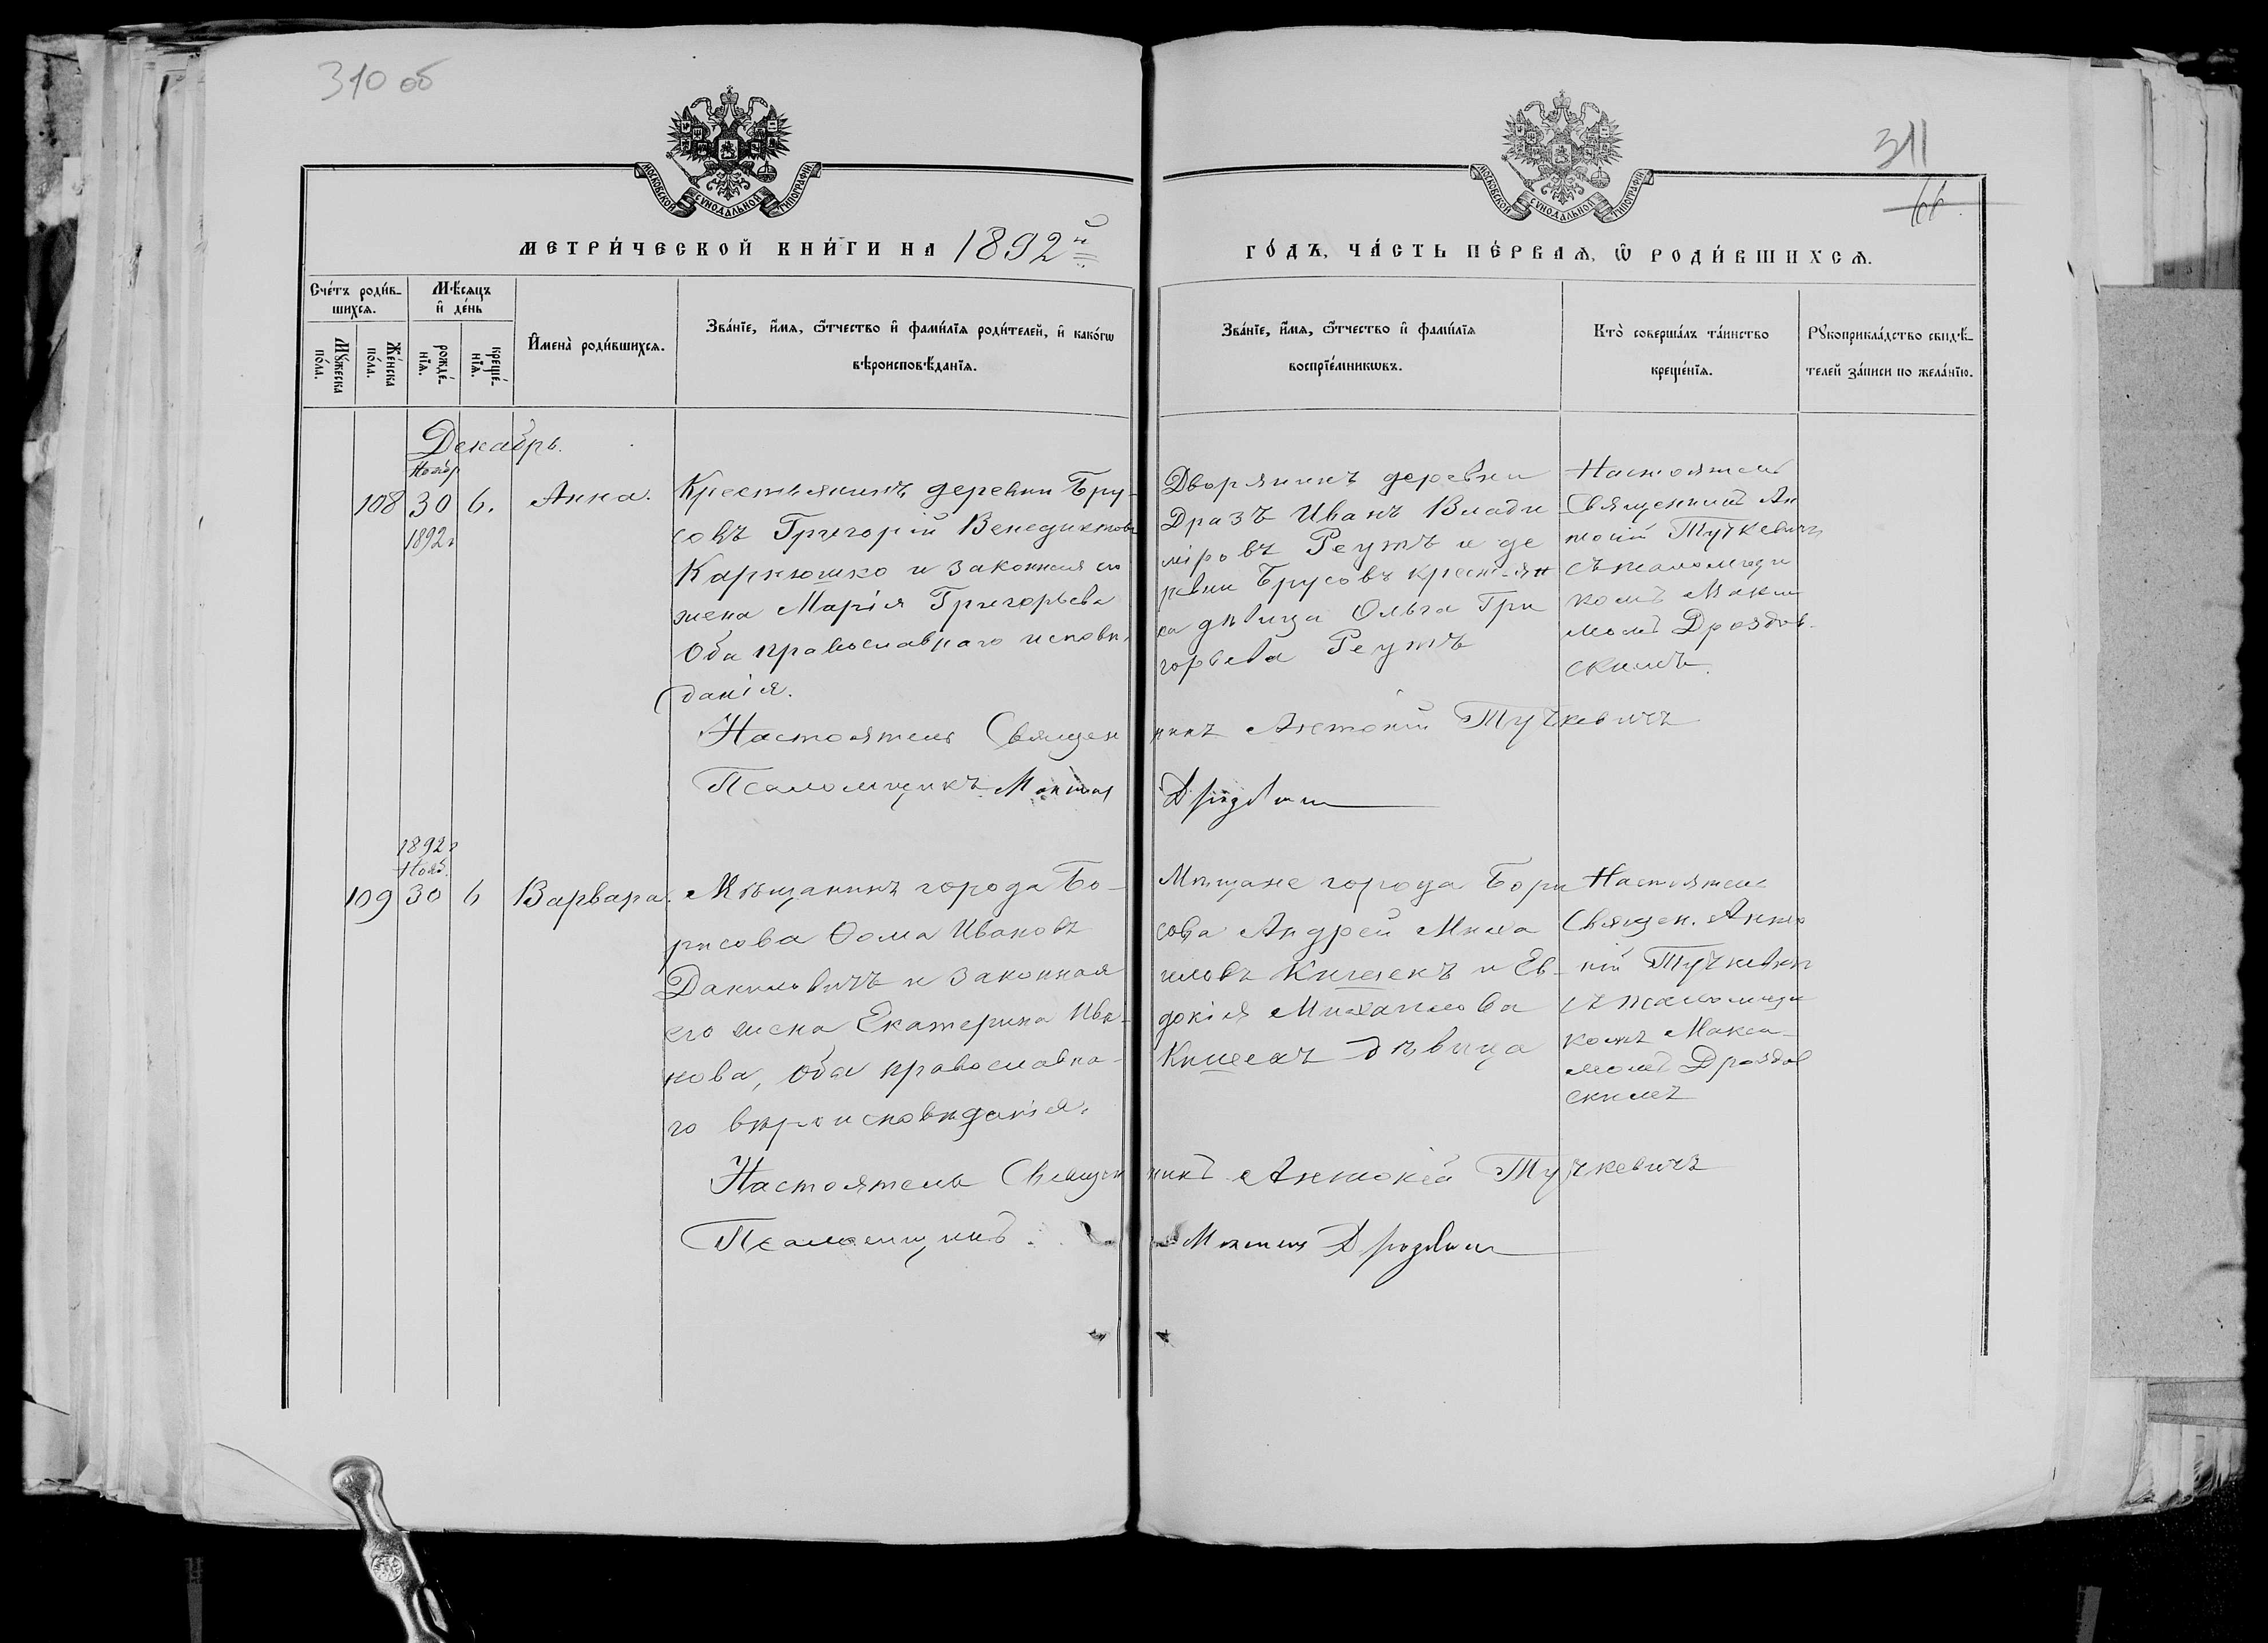 310 об
311
66.
МОСКОВСКОЙ СѴНОДАЛЬНОЙ ТИПОГРАФІИ
МОСКОВСКОЙ СѴНОДАЛЬНОЙ ТИПОГРАФІИ
МЕТРИ́ЧЕСКОЙ КНИ́ГИ НА 1892й
ГО́ДЪ, ЧА́СТЬ ПЕ́РВАѦ, Ѿ РОДИ́ВШИХСѦ.
Сче́тъ роди́в-
шихсѧ.
Мѣ́сѧцъ
и҆ де́нь
Мꙋ́жеска
по́ла.
Же́нска
по́ла.
рожде́-
нїѧ.
креще́-
нїѧ.
И҆мена̀ роди́вшихсѧ.
Зва́нїе, и҆́мѧ, ѻ҆́тчество и҆ фами́лїѧ роди́телей, и҆ како́гѡ
вѣроисповѣ́данїѧ.
Зва́нїе, и҆́мѧ, ѻ҆́тчество и҆ фами́лїѧ
воспрїе́мникѡвъ.
Кто̀ соверша́лъ та́инство
креще́нїѧ.
Рꙋкоприкла́дство свидѣ́-
телей за́писи по жела́нїю.
Декабрь.
Ноябр
108 30 6. Анна.
1892г
Крестьянинъ деревни Бру-
совъ Григорій Венедиктовъ
Карнюшко и законная его
жена Марія Григорьева
Оба православнаго исповѣ
данія.
Дворянинъ деревни
Дразъ Иванъ Влади
міровъ Реутъ и де
ревни Брусовъ крестьян
ка дѣвица Ольга Гри
горьева Реутъ
Настоятель
Священникъ Ан
тоній Тучкевичъ
съ псаломщи
комъ Макси
момъ Дроздов
скимъ.
Настоятель Священ никъ Антоній Тучкевичъ
Псаломщикъ Максимъ
1892г
Нояб.
109 30 6 Варвара.
Мѣщанинъ города Бо-
рисова Ѳома Ивановъ
Даниловичъ и законная
его жена Екатерина Ива-
нова, оба православна-
го вѣроисповѣданія.
Мѣщане города Бори
сова Андрей Миха
иловъ Кишекъ и Ев-
докія Михаилова
Кишекъ дѣвица
Настоятель
Священ. Анто
ній Тучкевич
съ псаломщи
комъ Макси-
момъ Дроздов
скимъ
Настоятель Священ никъ Антоній Тучкевичъ
Псаломщикъ Максимъ